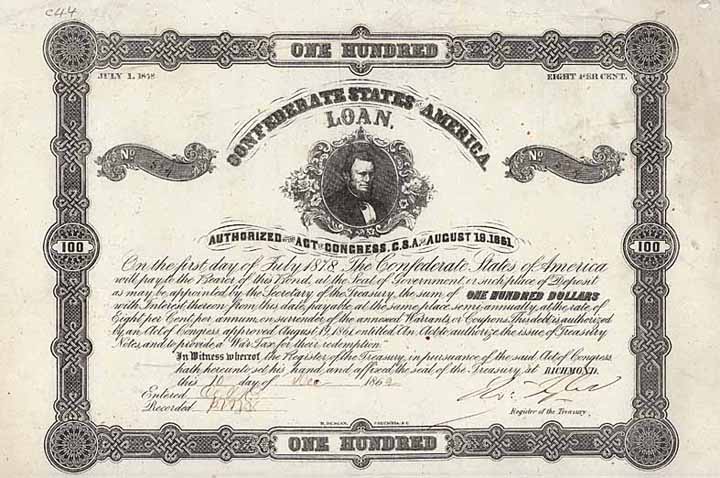 C44
ONE HUNDRED
JULY 1, 1878
EIGHT PER CENT.
CONFEDERATE STATES OF AMERICA.
LOAN.
No
No
AUTHORIZED BY THE ACT OF CONGRESS, C.S.A. OF AUGUST 19. 1861.
100
100
On the first day of July 1878, The Confederate States of America
will pay to the Bearer of this Bond, at the Seat of Government, or such place of Deposit
as may be appointed by the Secretary of the Treasury, the sum of ONE HUNDRED DOLLARS
with Interest thereon from this date, payable at the same place semi-annually, at the rate of
Eight per Cent per annum, on surrender of the annexed Warrants or Coupons. This debt is authorized
by an Act of Congress approved August 19, 1861, entitled An Act to authorize the issue of Treasury
Notes, and to provide a War Tax for their redemption.
In Witness whereof the Register of the Treasury, in pursuance of the said Act of Congress
hath hereunto set his hand, and affixed the seal of the Treasury, at RICHMOND.
this 10 day of Dec 1862
Entered
Recorded
Ro: Tyler
Register of the Treasury
B. DUNCAN, COLUMBIA, S.C.
ONE HUNDRED